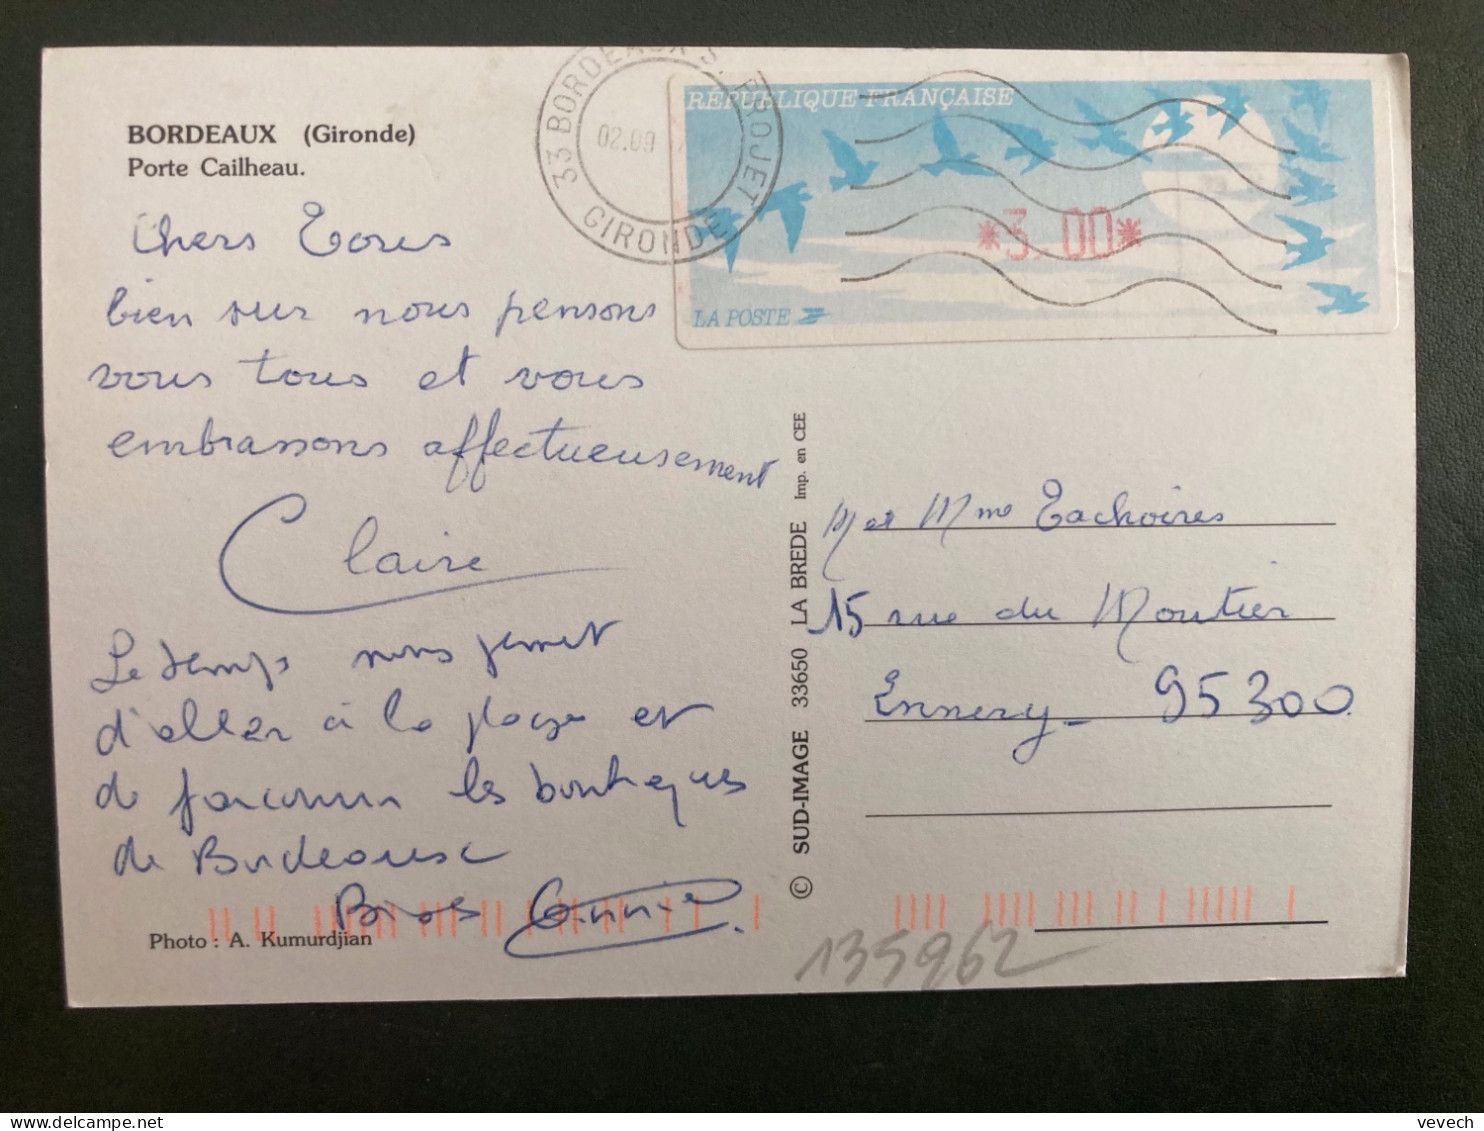 BORDEAUX (Gironde)
Porte Cailheau.
Chers Tous
bien sur nous pensons
vous tous et vous
embrassons affectueusement
Claire
Le temps nous permet
d'aller à la plage et
de parcourir les boutiques
de Bordeause
Bises Annie.
Photo : A. Kumurdjian
© SUD-IMAGE 33650 LA BREDE Imp. en CEE
33 BORDEAUX S. PROJET
02.09
GIRONDE
RÉPUBLIQUE FRANÇAISE
*3,00*
LA POSTE
M et Mme Tachoires
15 rue du Moutier
Ennery - 95300
135962
vevech